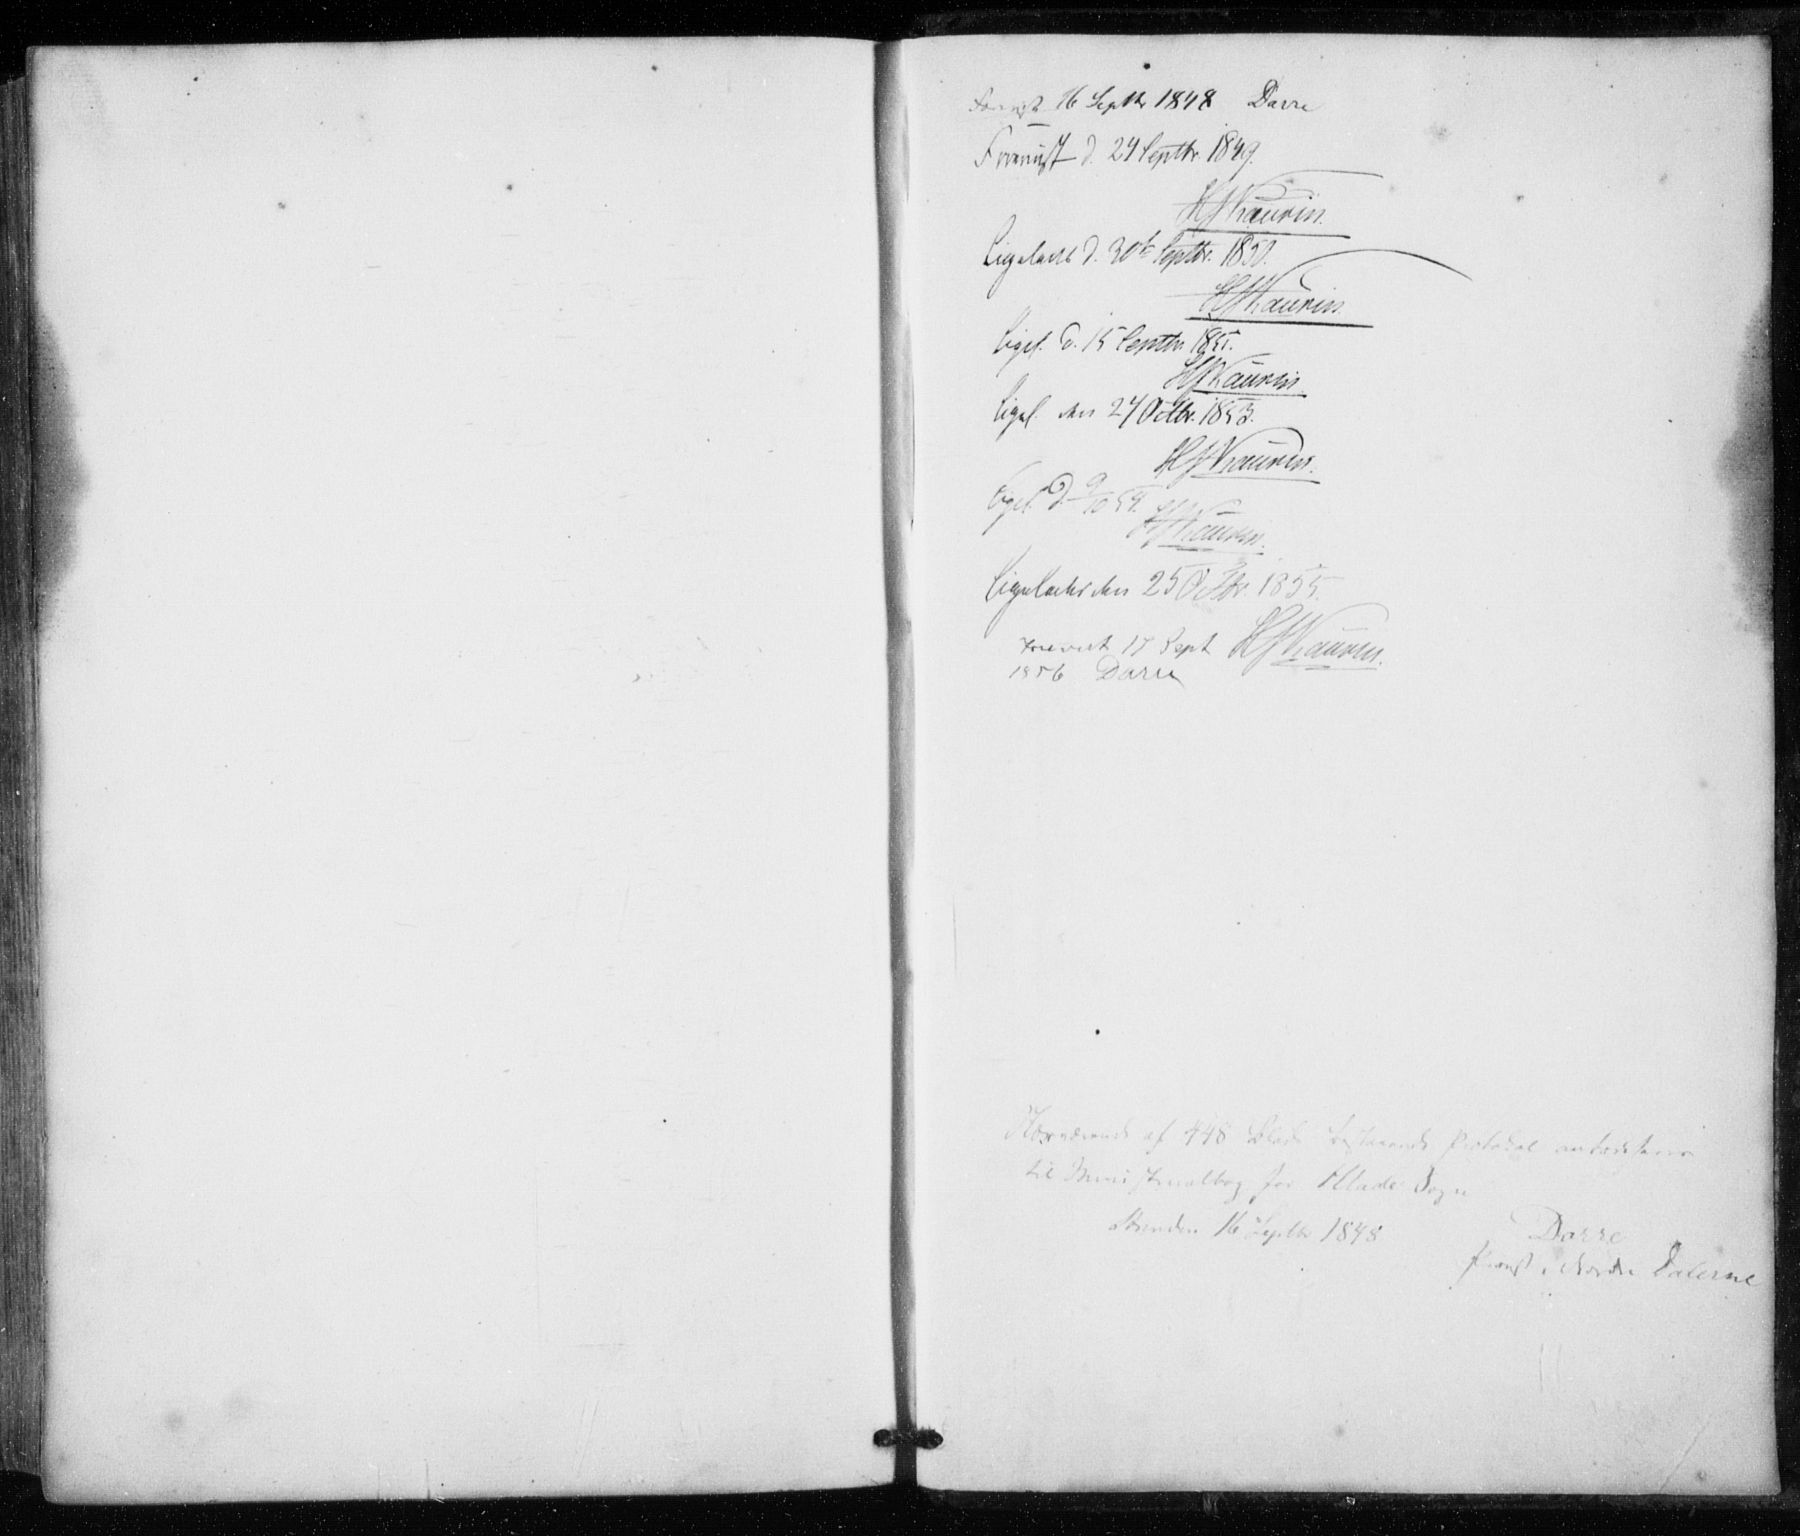 Forevist 16 Septbr 1848 Darre
Forevist d. 24 Septbr. 1849.
HJKaurin.
Ligeledes d. 30te Septbr. 1850.
HJKaurin.
Ligel. d. 15 Septbr. 1851.
HJKaurin.
Ligel. den 24 Octbr. 1853.
HJKaurin.
Ligel. d. 9/10 54.
HJKaurin.
Ligeledes den 25 Octbr. 1855.
HJKaurin.
Forevist 17 Sept
1856 Darre
Nærværende af 448 Blade bestaaende Protokol autoriseres
til Ministerialbog for Hlade Sogn
16 Septbr 1848
Darre
Provst i Nordre Dalerne